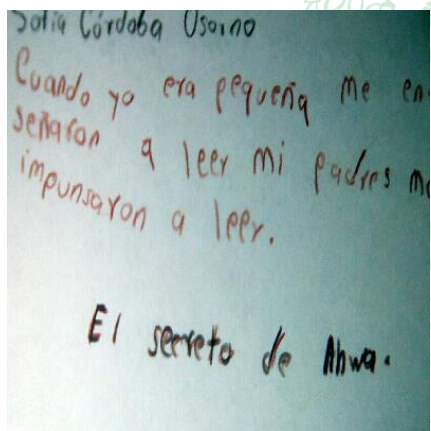 Sofía Córdoba Osorno
Cuando yo era pequeña me en-
señaron a leer mi padres me
impunsaron a leer.
El secreto de Ahwa.